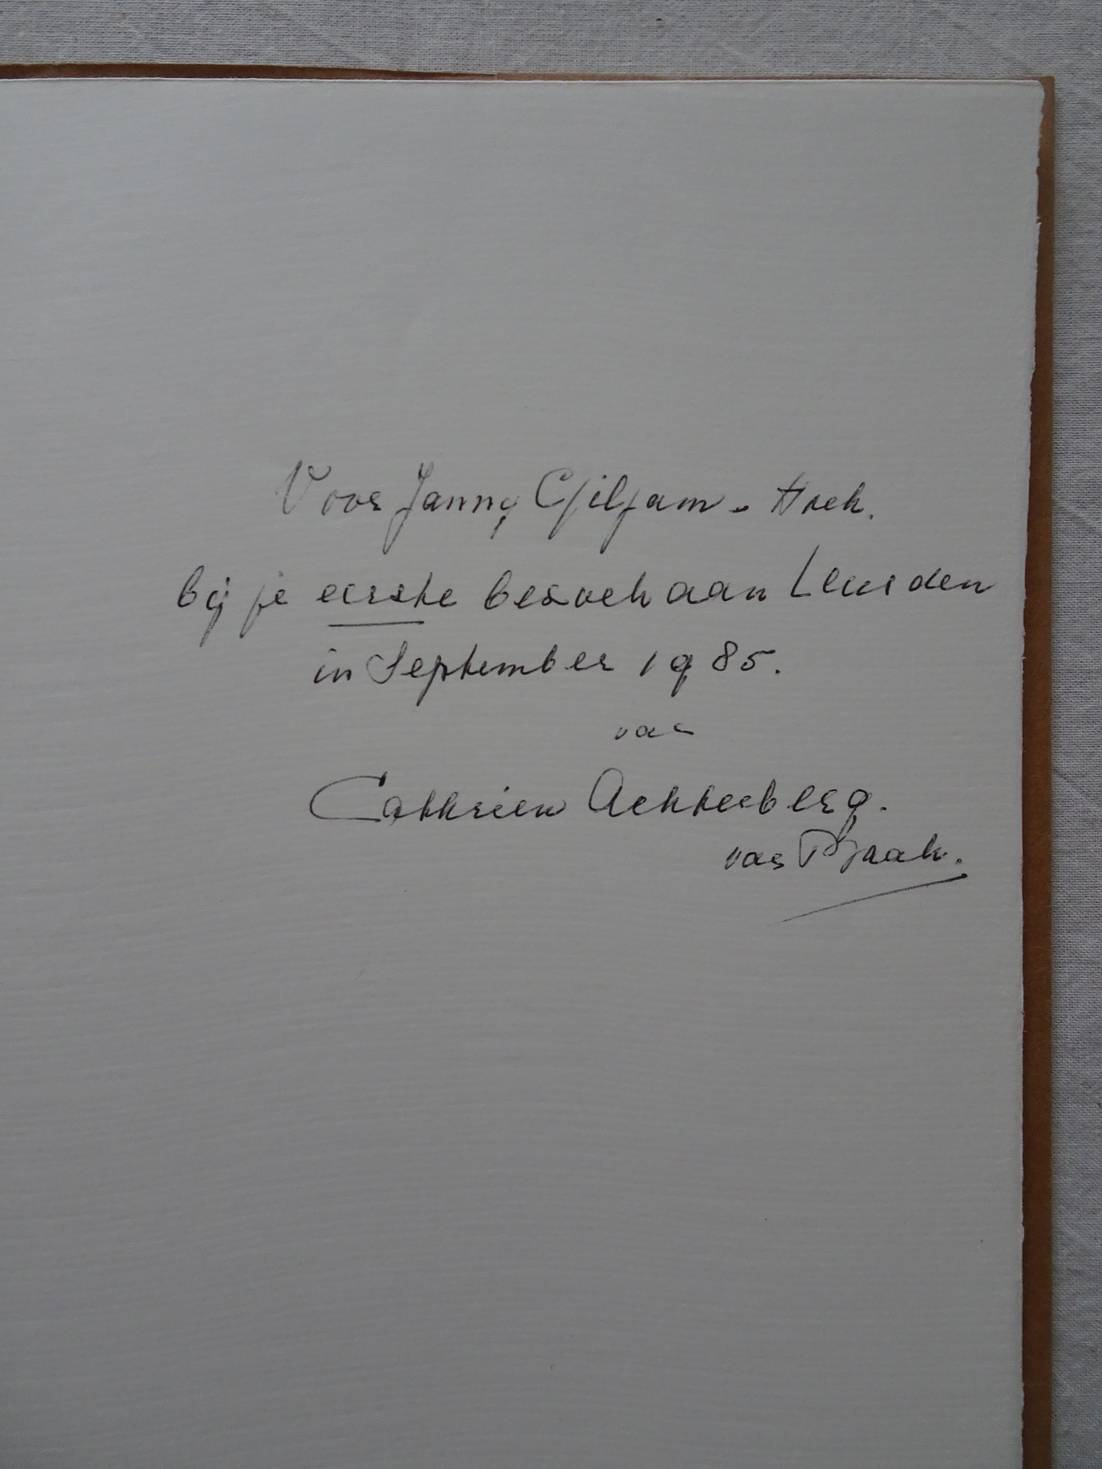 Voor Janny Giljam - Hoek.
bij je eerste bezoek aan Leusden
in September 1985.
van
Cathrien Achterberg.
van Baak.